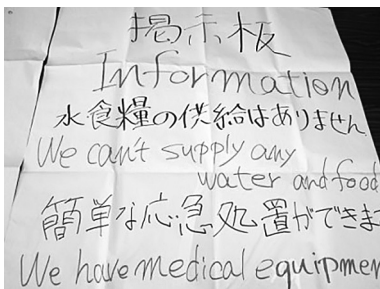 掲示板
Information
水食糧の供給はありません
We can't supply any
water and food
簡単な応急処置ができま
We have medical equipmen